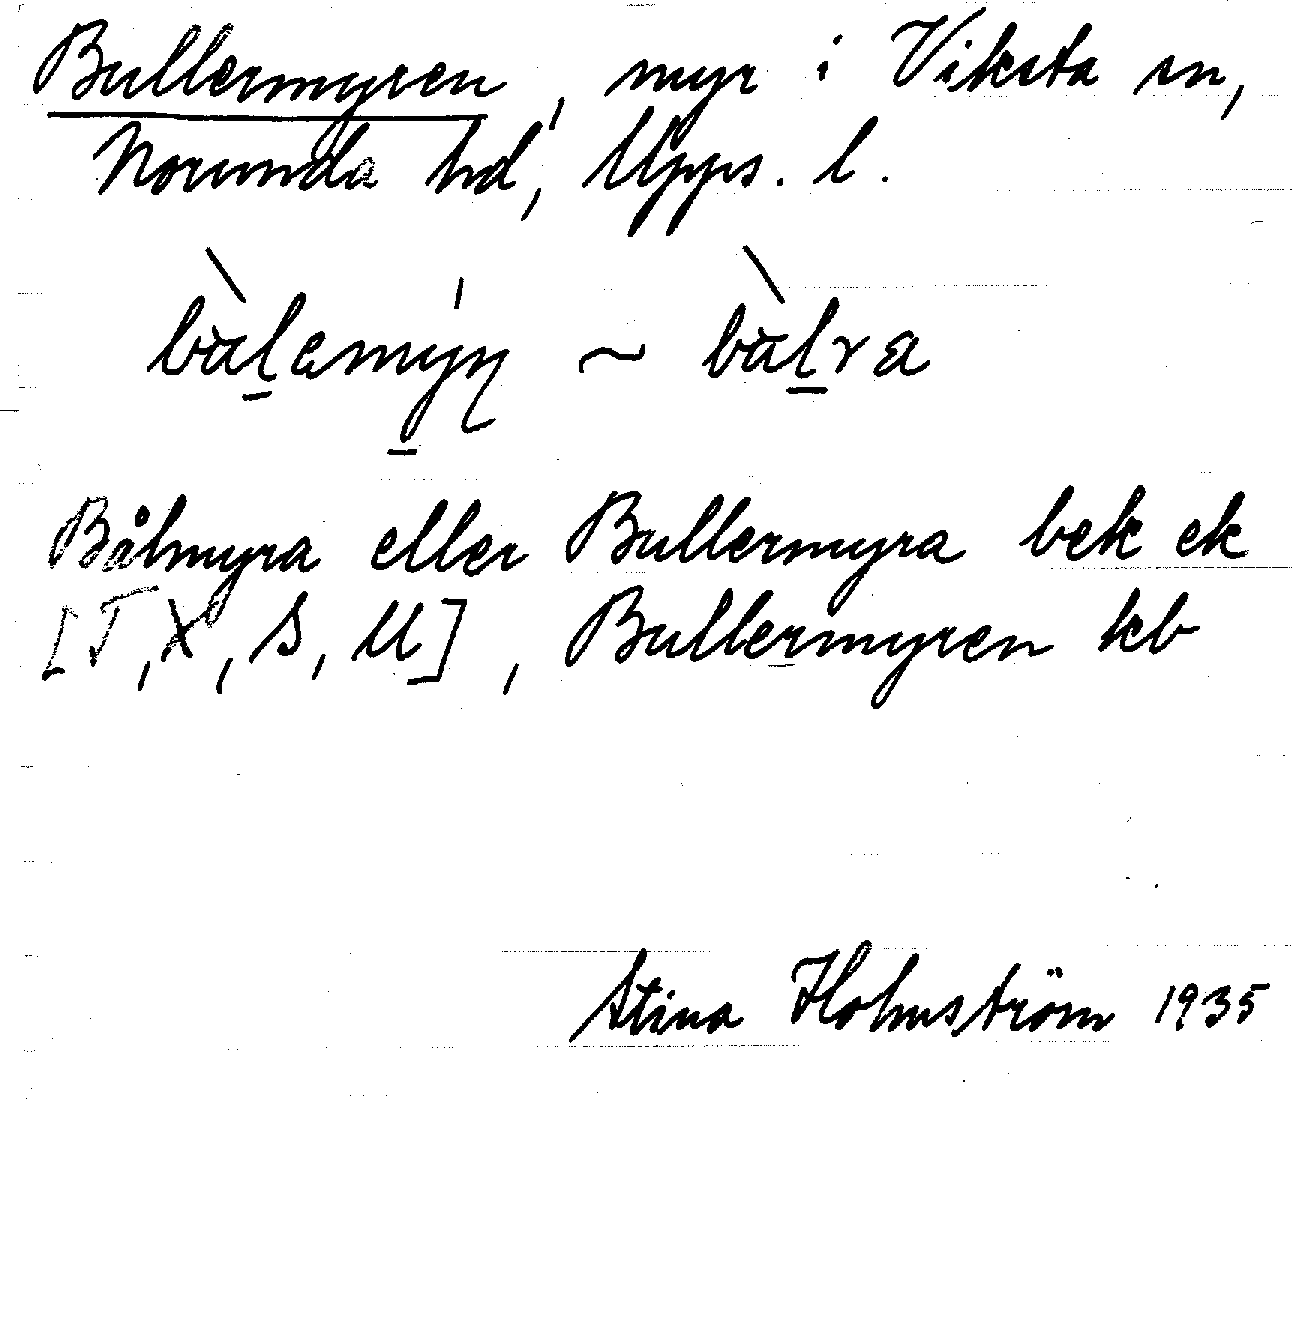 Bullermyren, myr i Viksta sn,
Norunda hd, Upps. l.
bàlemýn ~ bàlra
Bålmyra eller Bullermyra bek ek
[T, X, S, U], Bullermyren kb
Stina Holmström 1935